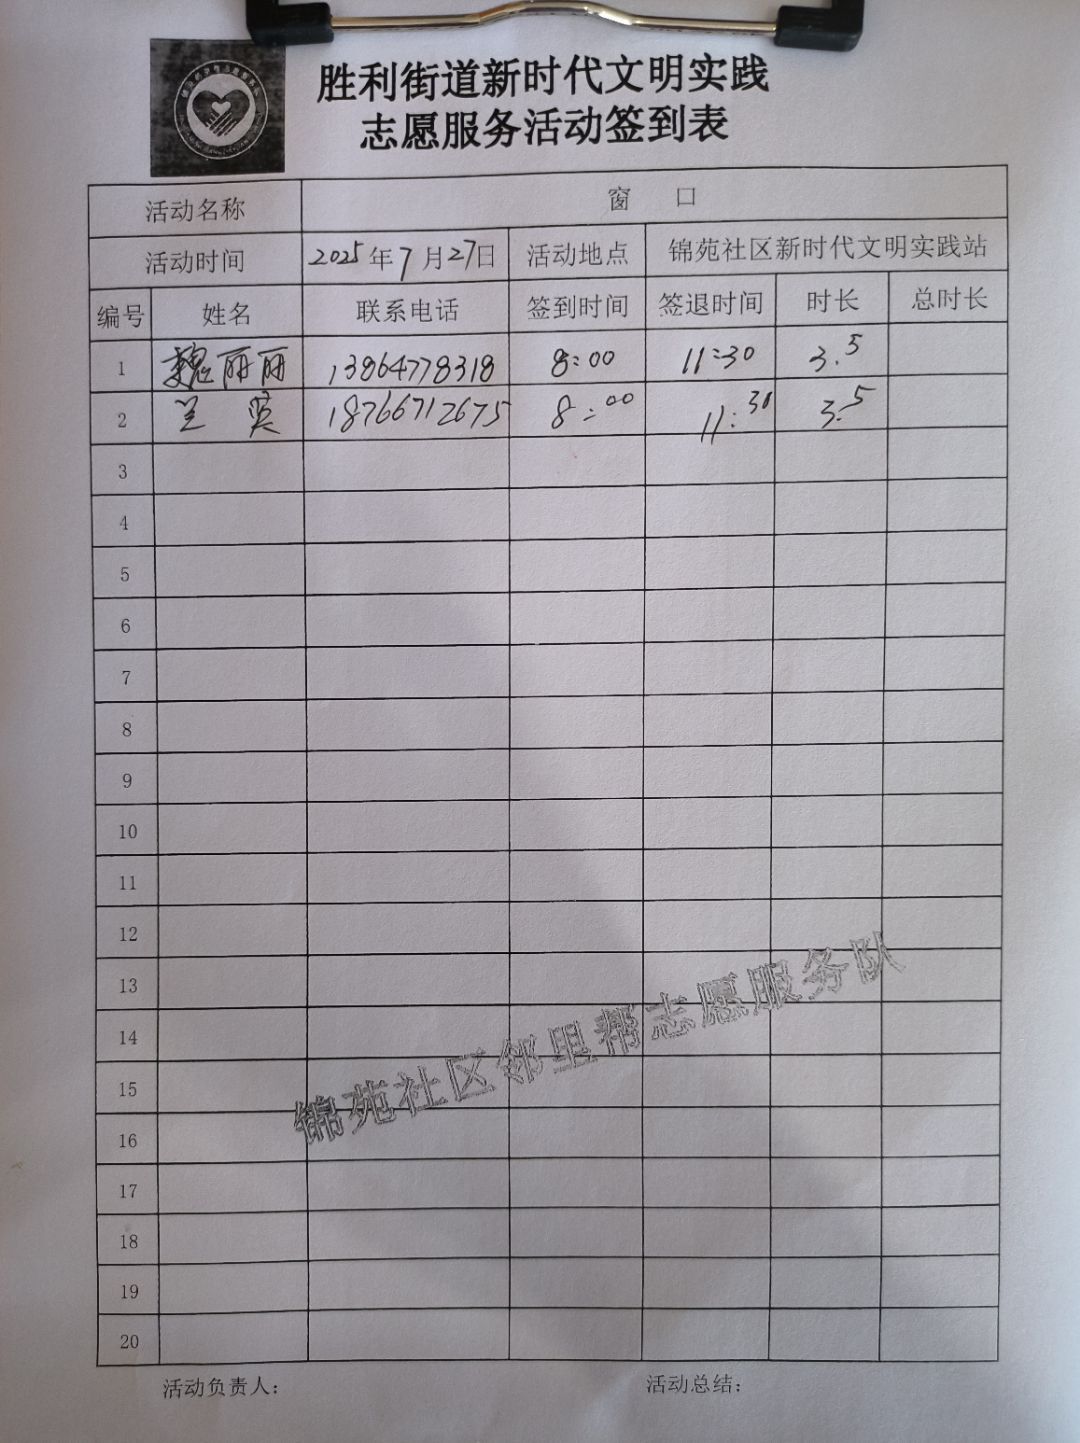 胜利街道新时代文明实践
志愿服务活动签到表
活动名称 窗 口
活动时间 2025年7月27日 活动地点 锦苑社区新时代文明实践站
编号 姓名 联系电话 签到时间 签退时间 时长 总时长
1 魏丽丽 13864778318 8:00 11:30 3.5
2 兰 英 18766712675 8:00 11:30 3.5
3
4
5
6
7
8
9
10
11
12
13
14
15
16
17
18
19
20
锦苑社区邻里帮志愿服务队
活动负责人: 活动总结: